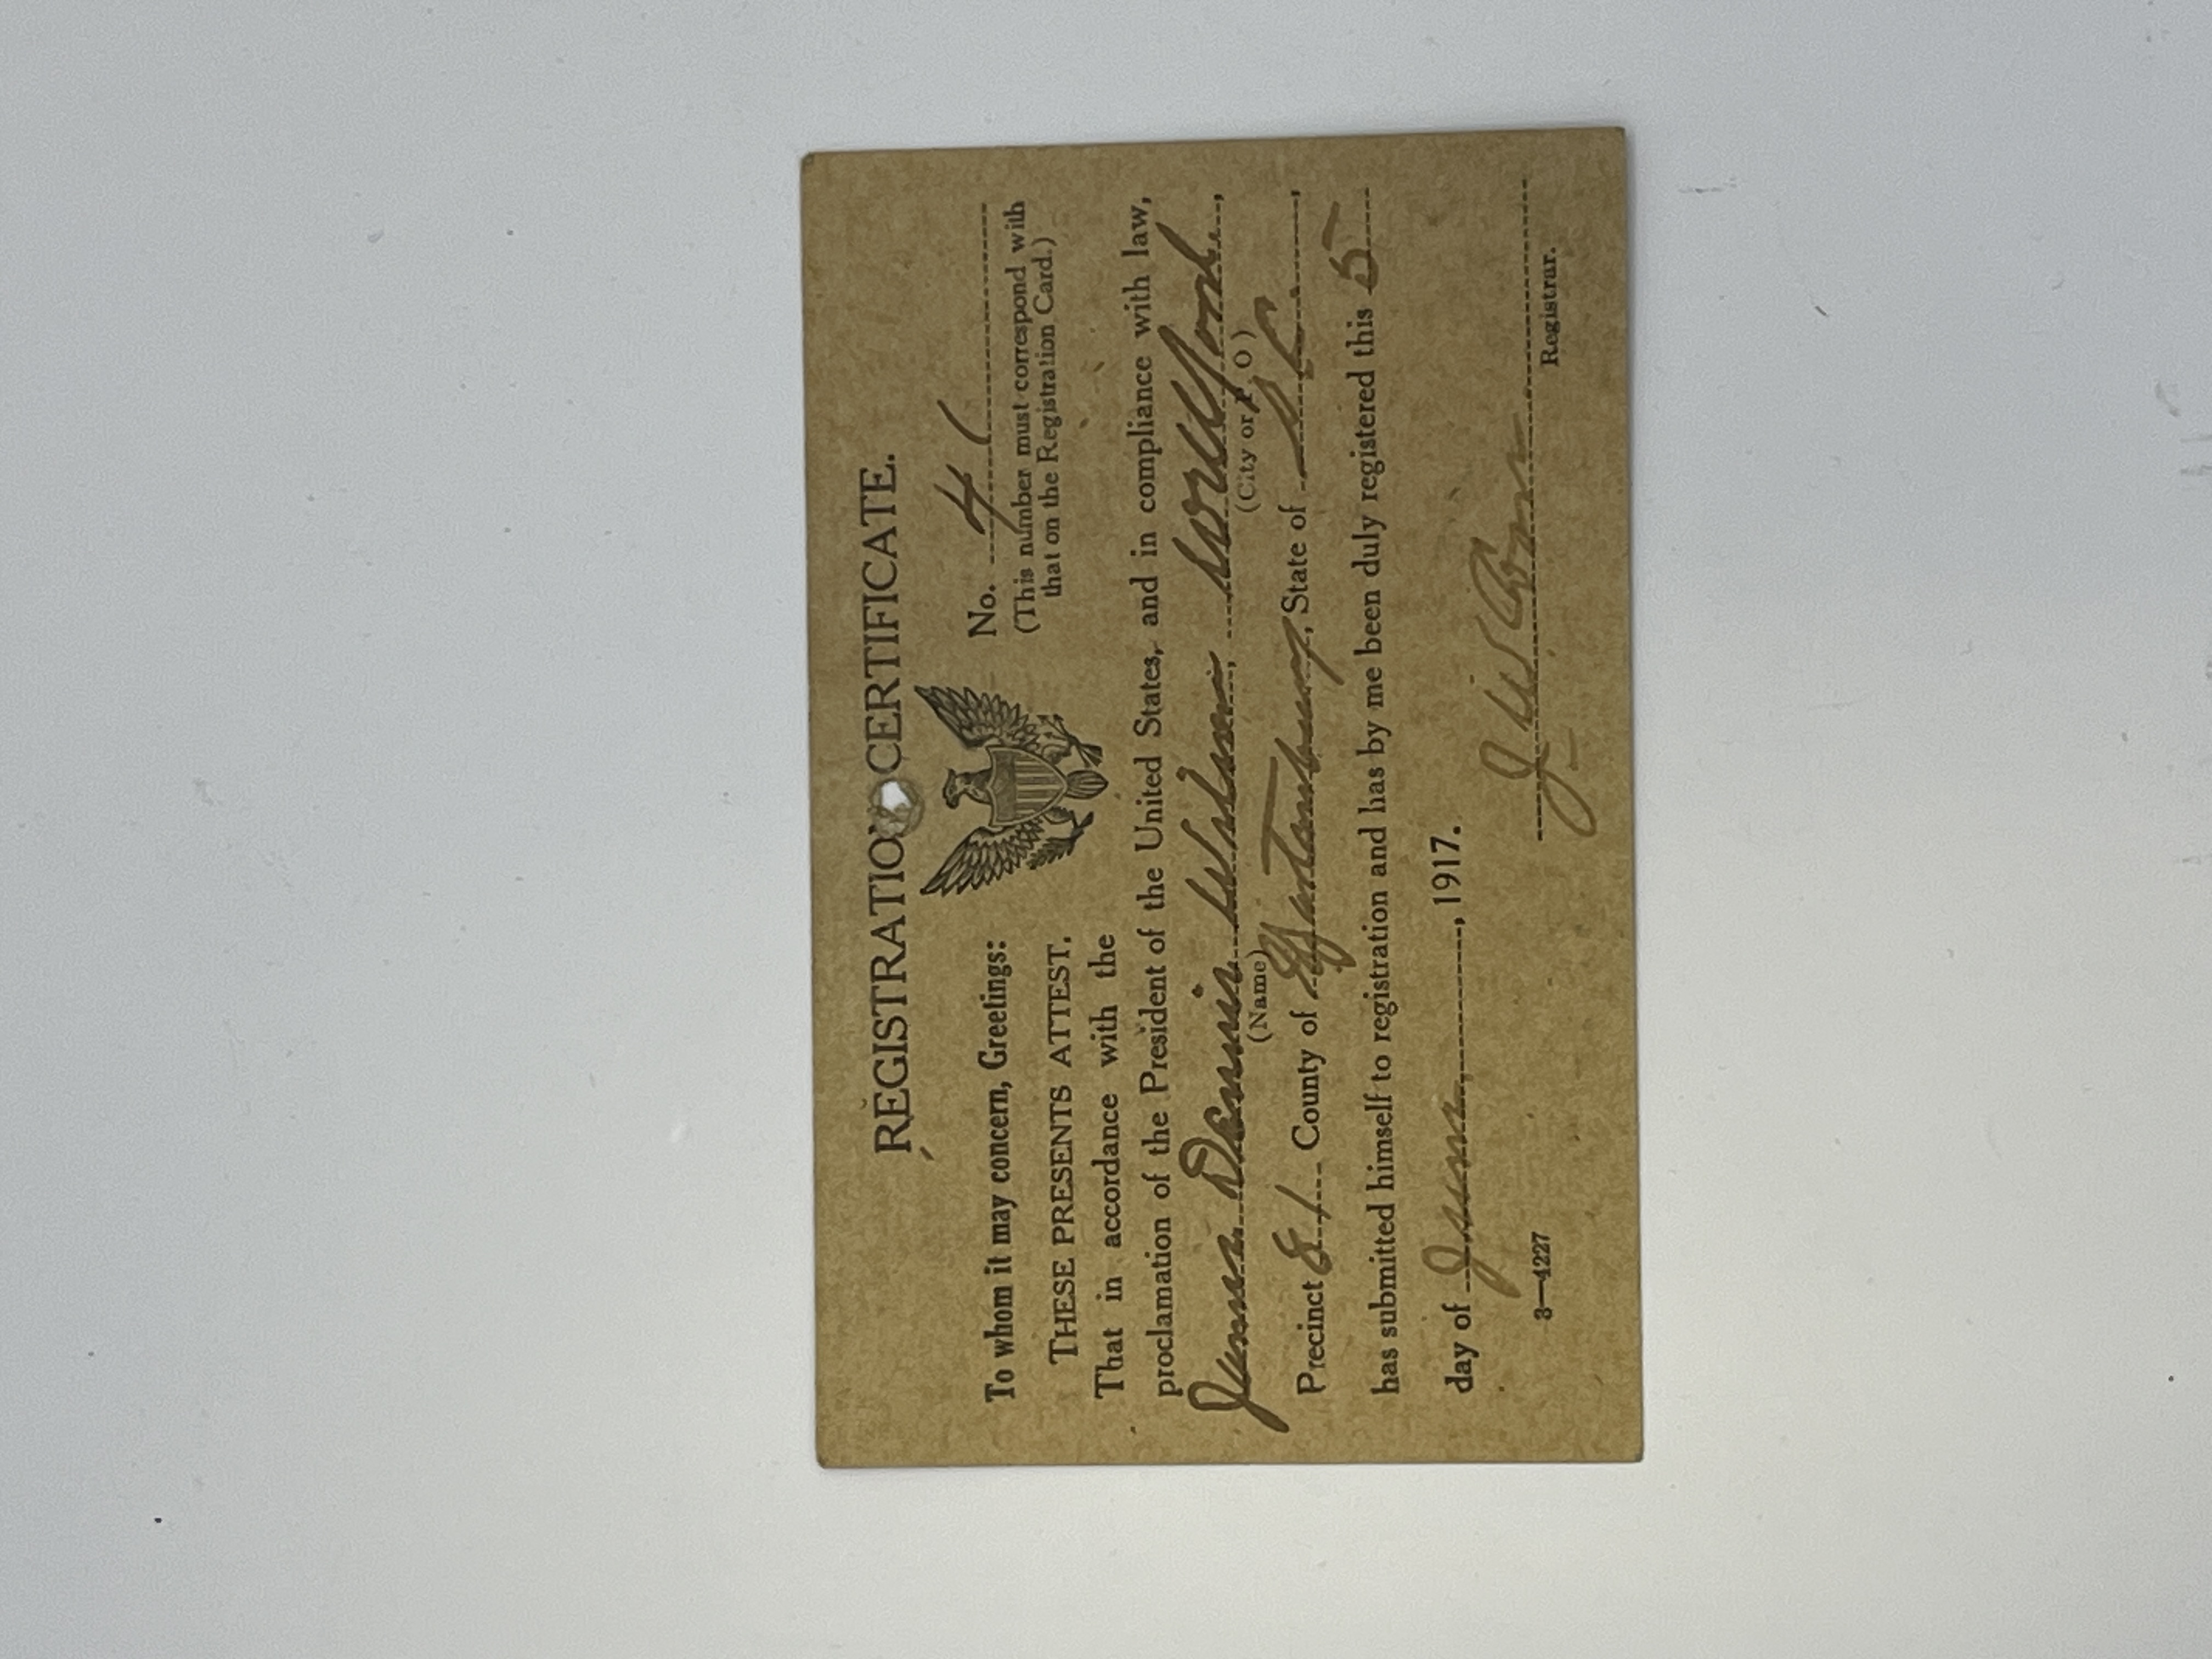 REGISTRATION CERTIFICATE.
To whom it may concern, Greetings:
No. 41
(This number must correspond with
that on the Registration Card.)
THESE PRESENTS ATTEST,
That in accordance with the
proclamation of the President of the United States, and in compliance with law,
Dennis Wilson,
(Name)
(City or P. O)
Precinct 81 County of Spartanburg, State of S C,
has submitted himself to registration and has by me been duly registered this 5
day of June, 1917.
J W
Registrar.
3—4227